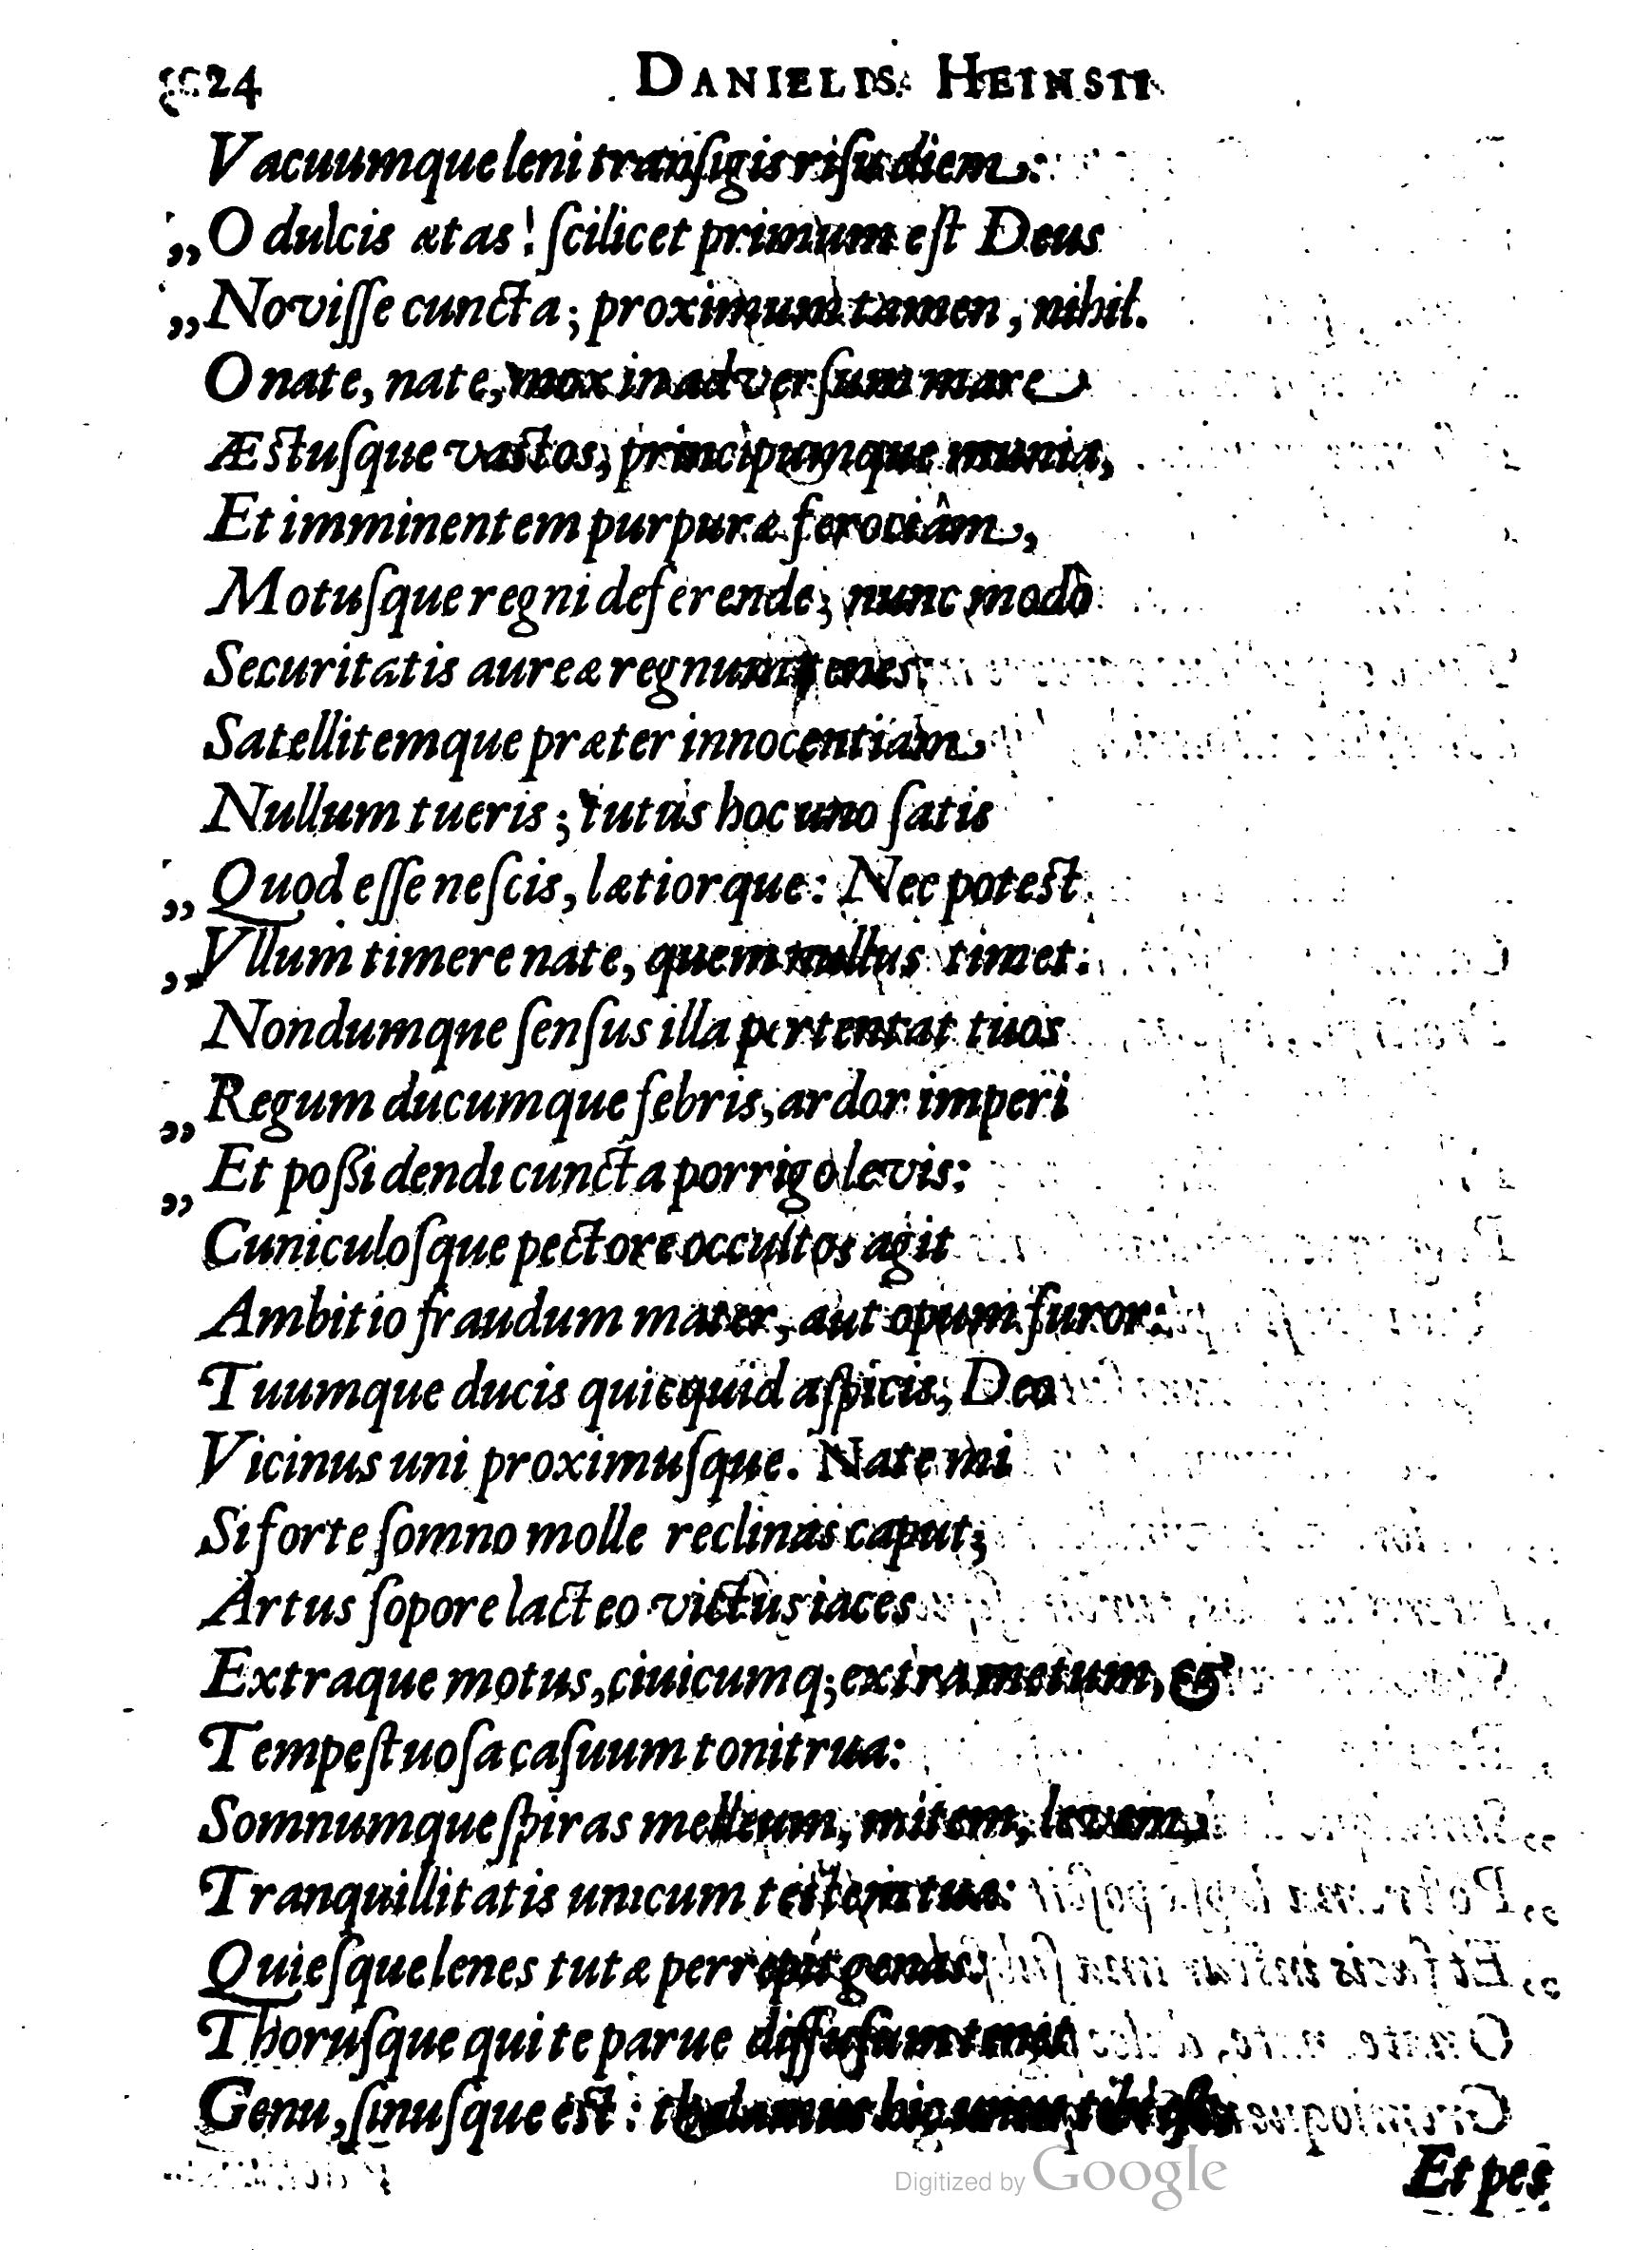 24 DANIELIS HEINSII
Vacuumque leni tranſigis riſu diem:
„O dulcis ætas! ſcilicet primum eſt Deus
„Noviſſe cuncta; proximum tamen, nihil.
O nate, nate, mox in adverſum mare
Æſtuſque vaſtos, principumque munia,
Et imminentem purpuræ ferociâm,
Motuſque regni deferende; nunc modò
Securitatis aureæ regnum tenes:
Satellitemque præter innocentiam
Nullum tueris; tutus hoc uno ſatis
„Quod eſſe neſcis, lætiorque: Nec poteſt
„Vllum timere nate, quem nullus timet:
Nondumque ſenſus illa pertentat tuos
„Regum ducumque febris, ardor imperi
„Et poſſidendi cuncta porrigo levis:
Cuniculoſque pectore occultos agit
Ambitio fraudum mater, aut opum furor:
Tuumque ducis quicquid aſpicis, Deo
Vicinus uni proximuſque. Nate mi
Si forte ſomno molle reclinas caput;
Artus ſopore lacteo victus iaces
Extraque motus, ciuicumq; extra metum, &
Tempeſtuoſa caſuum tonitrua:
Somnumque ſpiras melleum, mitem, levem,
Tranquillitatis unicum teſtem tuæ:
Quieſque lenes tutæ perrepit genas:
Thoruſque qui te parue diffuſum tenet
Genu, ſinuſque eſt: thalamus hic unus tibi eſt,
Et pes
Digitized by Google